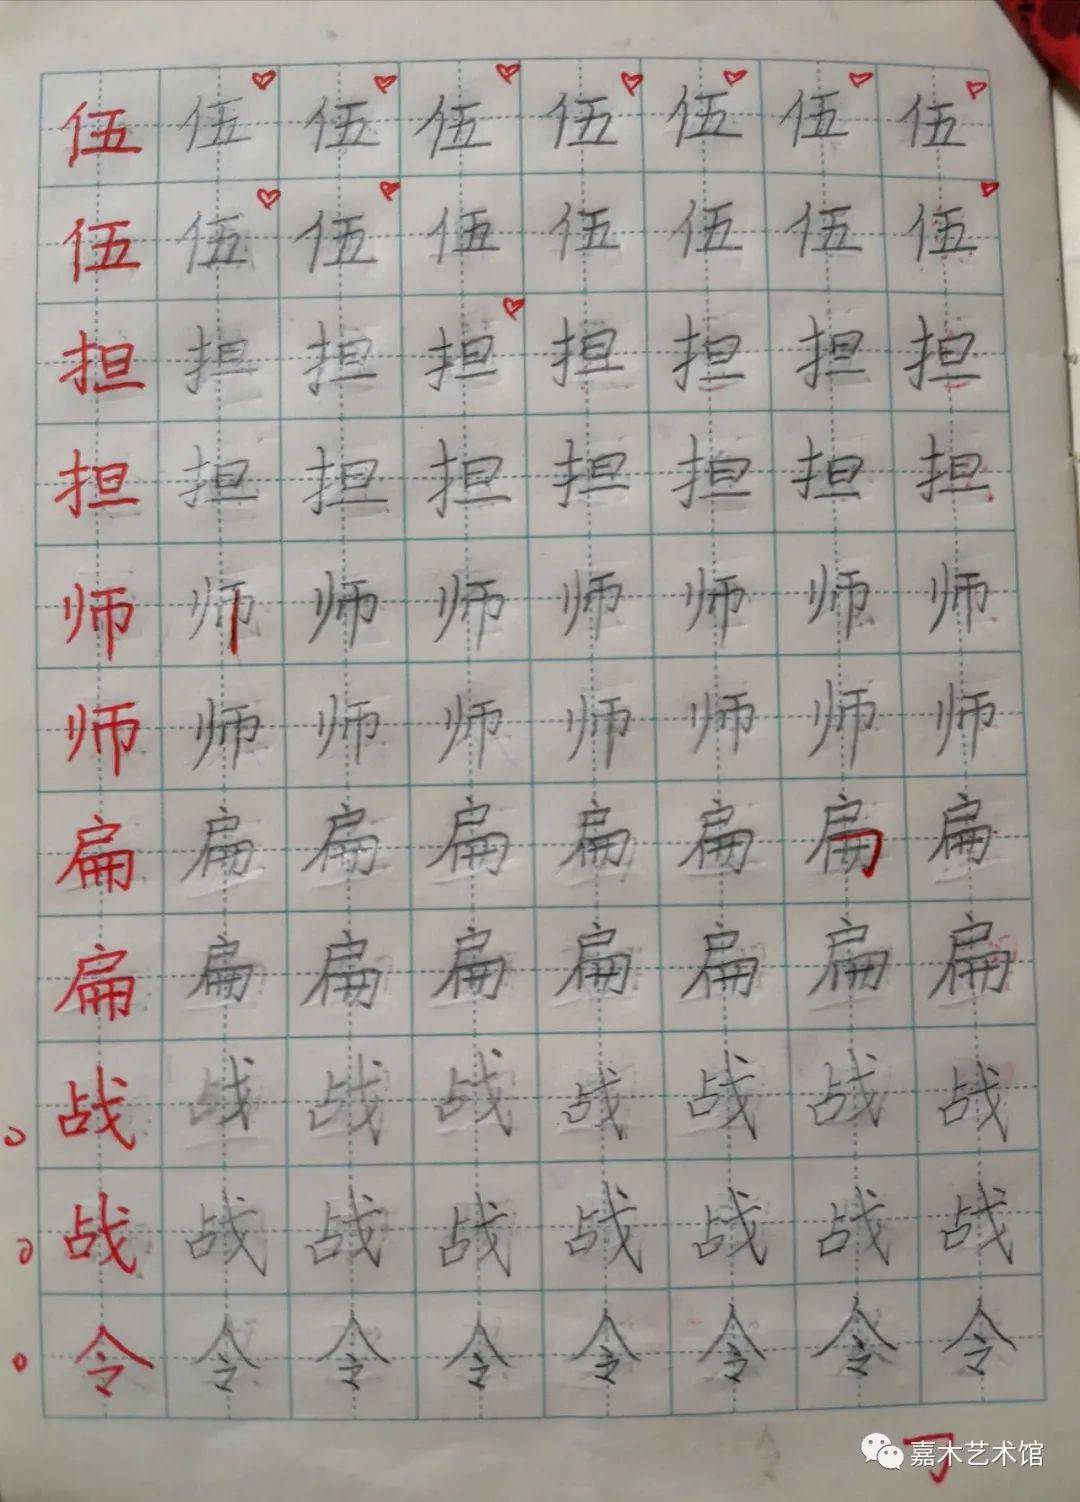 伍伍伍伍伍伍伍伍
伍伍伍伍伍伍伍伍
担担担担担担担担
担担担担担担担担
师师师师师师师师
师师师师师师师师
扁扁扁扁扁扁扁扁
扁扁扁扁扁扁扁扁
战战战战战战战战
战战战战战战战战
令令令令令令令令
令
嘉木艺术馆